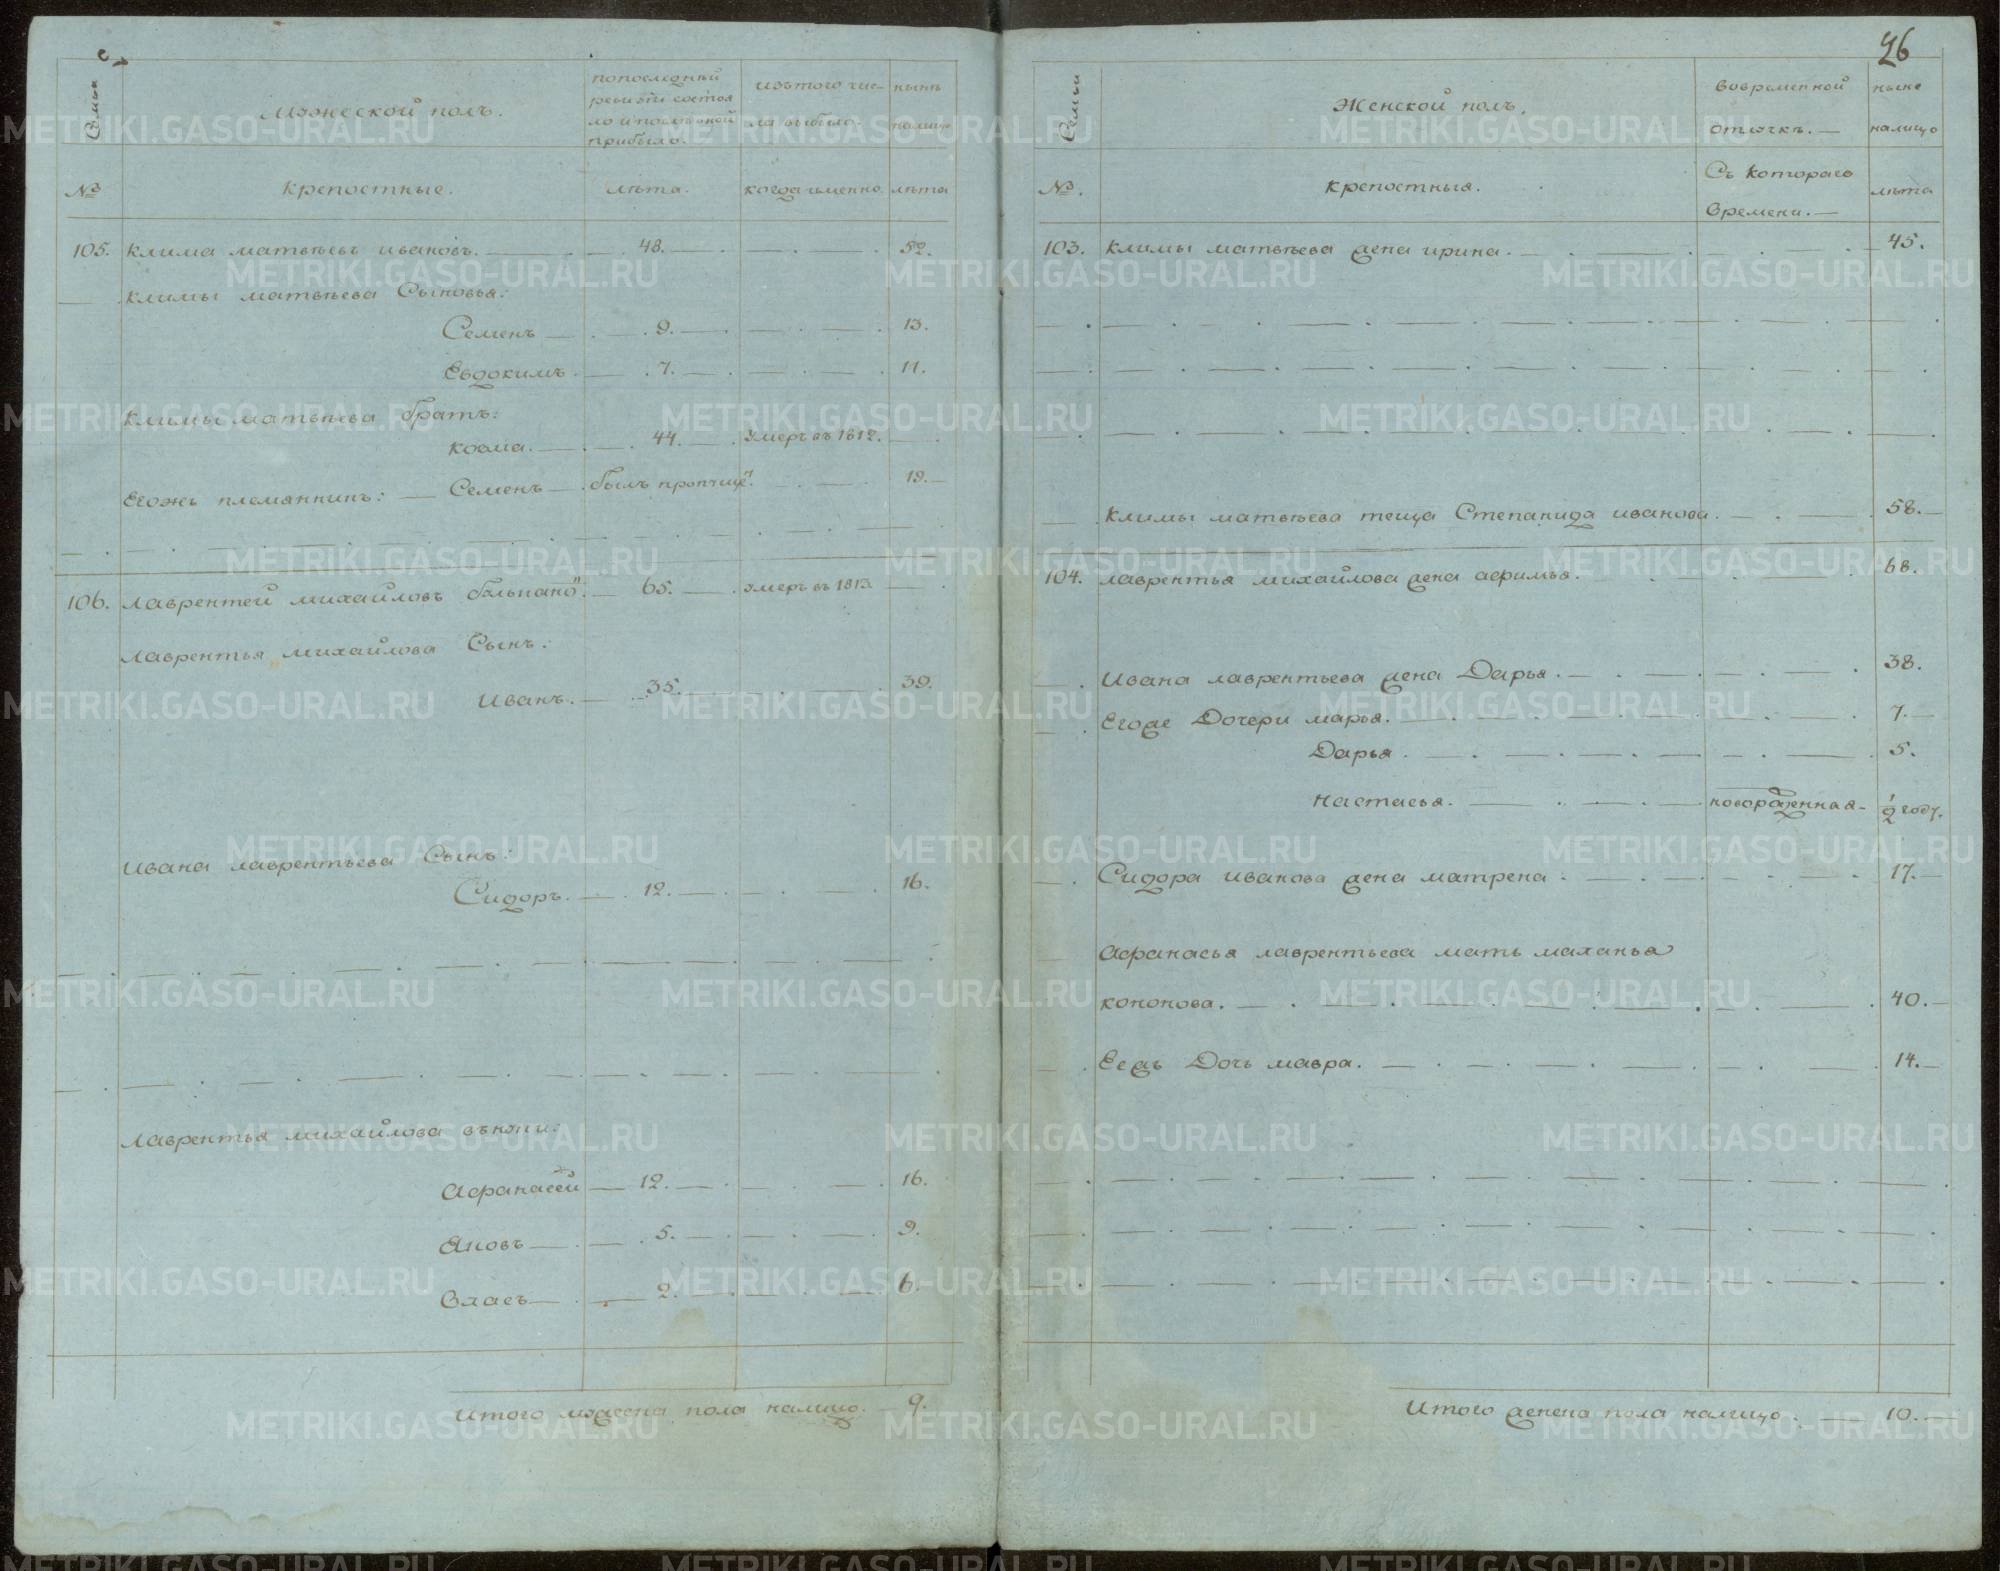 26
Семьи
Мужеской полъ.
попоследней
ревизіи состоя
ло и после оной
прибыло.
изътого чис-
ла выбыло.
нынѣ
налицо
№
крепостные.
лѣта.
когда именно
лѣта
105. клима матвѣевъ ивановъ. 48. 52.
климы матвѣева Сыновья:
Семенъ 9. 13.
Евдокимъ. 7. 11.
климы матвѣева братъ:
козма. 44. умеръ въ 1812.
Егожъ племянникъ: Семенъ былъ 19.
106. лаврентей михайловъ 65. умеръ въ 1813
лаврентья михайлова Сынъ:
Иванъ. 35. 39.
Ивана лаврентьева Сынъ:
Сидоръ. 12. 16.
лаврентья михайлова внуки:
Афанасей 12. 16.
Яковъ 5. 9.
Власъ 2. 6.
Итого мужеска пола налицо. 9.
Семьи
Женской полъ.
вовременной
отлучкѣ.
ныне
налицо
№.
крепостныя.
Съ котораго
времени.
лѣта
103. климы матвѣева жена ирина. 45.
климы матвѣева теща Степанида иванова. 58.
104. лаврентья михайлова жена афимья. 68.
Ивана лаврентьева жена Дарья. 38.
Егоже Дочери марья. 7.
Дарья. 5.
настасья. новорожденная 1/2 году.
Сидора иванова жена матрена. 17.
Афанасья лаврентьева мать маланья
кононова. 40.
Ееже Дочь мавра. 14.
Итого женска пола налицо. 10.
METRIKI.GASO-URAL.RU